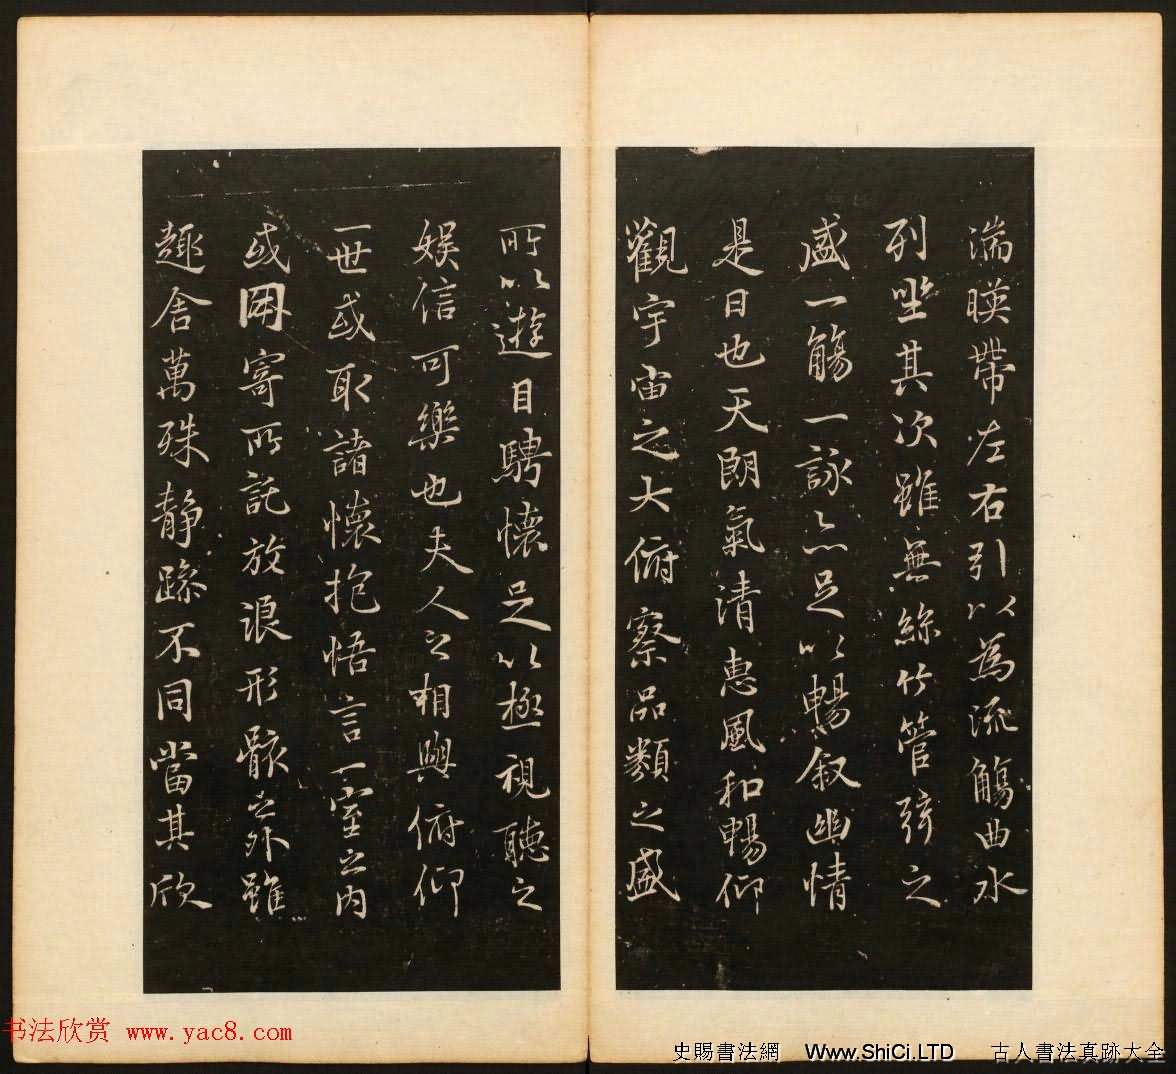 湍暎帶左右引以為流觴曲水
列坐其次雖無絲竹管弦之
盛一觴一詠亦足以暢叙幽情
是日也天朗氣清惠風和暢仰
觀宇宙之大俯察品類之盛
所以遊目騁懷足以極視聽之
娛信可樂也夫人之相與俯仰
一世或取諸懷抱悟言一室之內
或因寄所託放浪形骸之外雖
趣舍萬殊静躁不同當其欣
书法欣赏 www.yac8.com
史賜書法網 Www.ShiCi.LTD 古人書法真跡大全